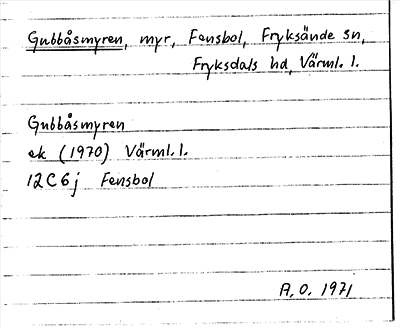 Gubbåsmyren, myr, Fensbol, Fryksände sn,
Fryksdals hd, Värml. l.
Gubbåsmyren
ek (1970) Värml. l.
12C6j Fensbol
A. O. 1971